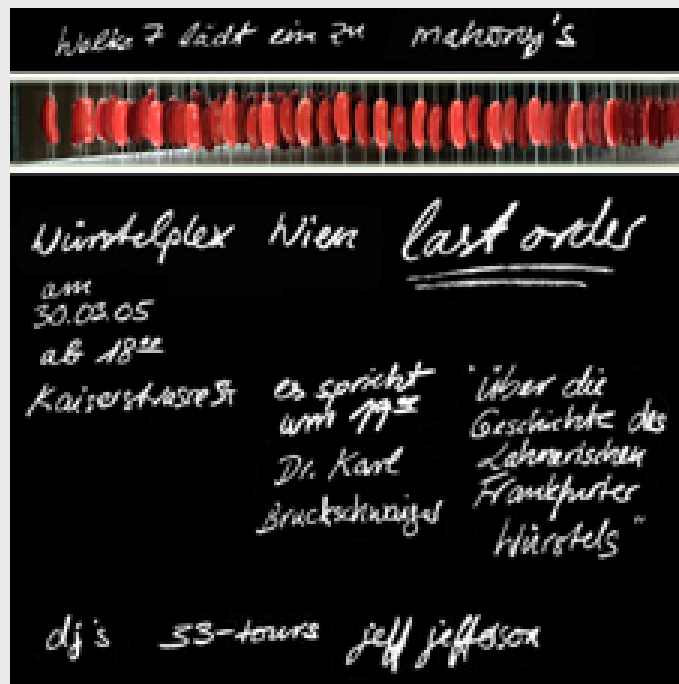 Wolke 7 lädt ein zu mahony's
Würstelplex Wien last order
am
30.03.05
ab 18⁰⁰
Kaiserstrasse
es spricht
um 19⁰⁰
Dr. Karl
Bruckschwaiger
"Über die
Geschichte des
Lahnerischen
Frankfurter
Würstels"
dj's 33-tours jeff jefferson